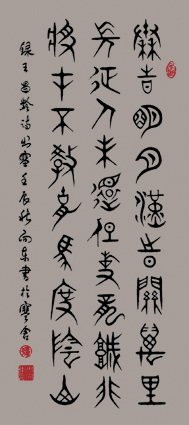 秦時明月漢時關萬里
長征人未還但使龍城飛
將在不教胡馬度陰山
錄王昌齡詩出塞壬辰秋向東書於舍